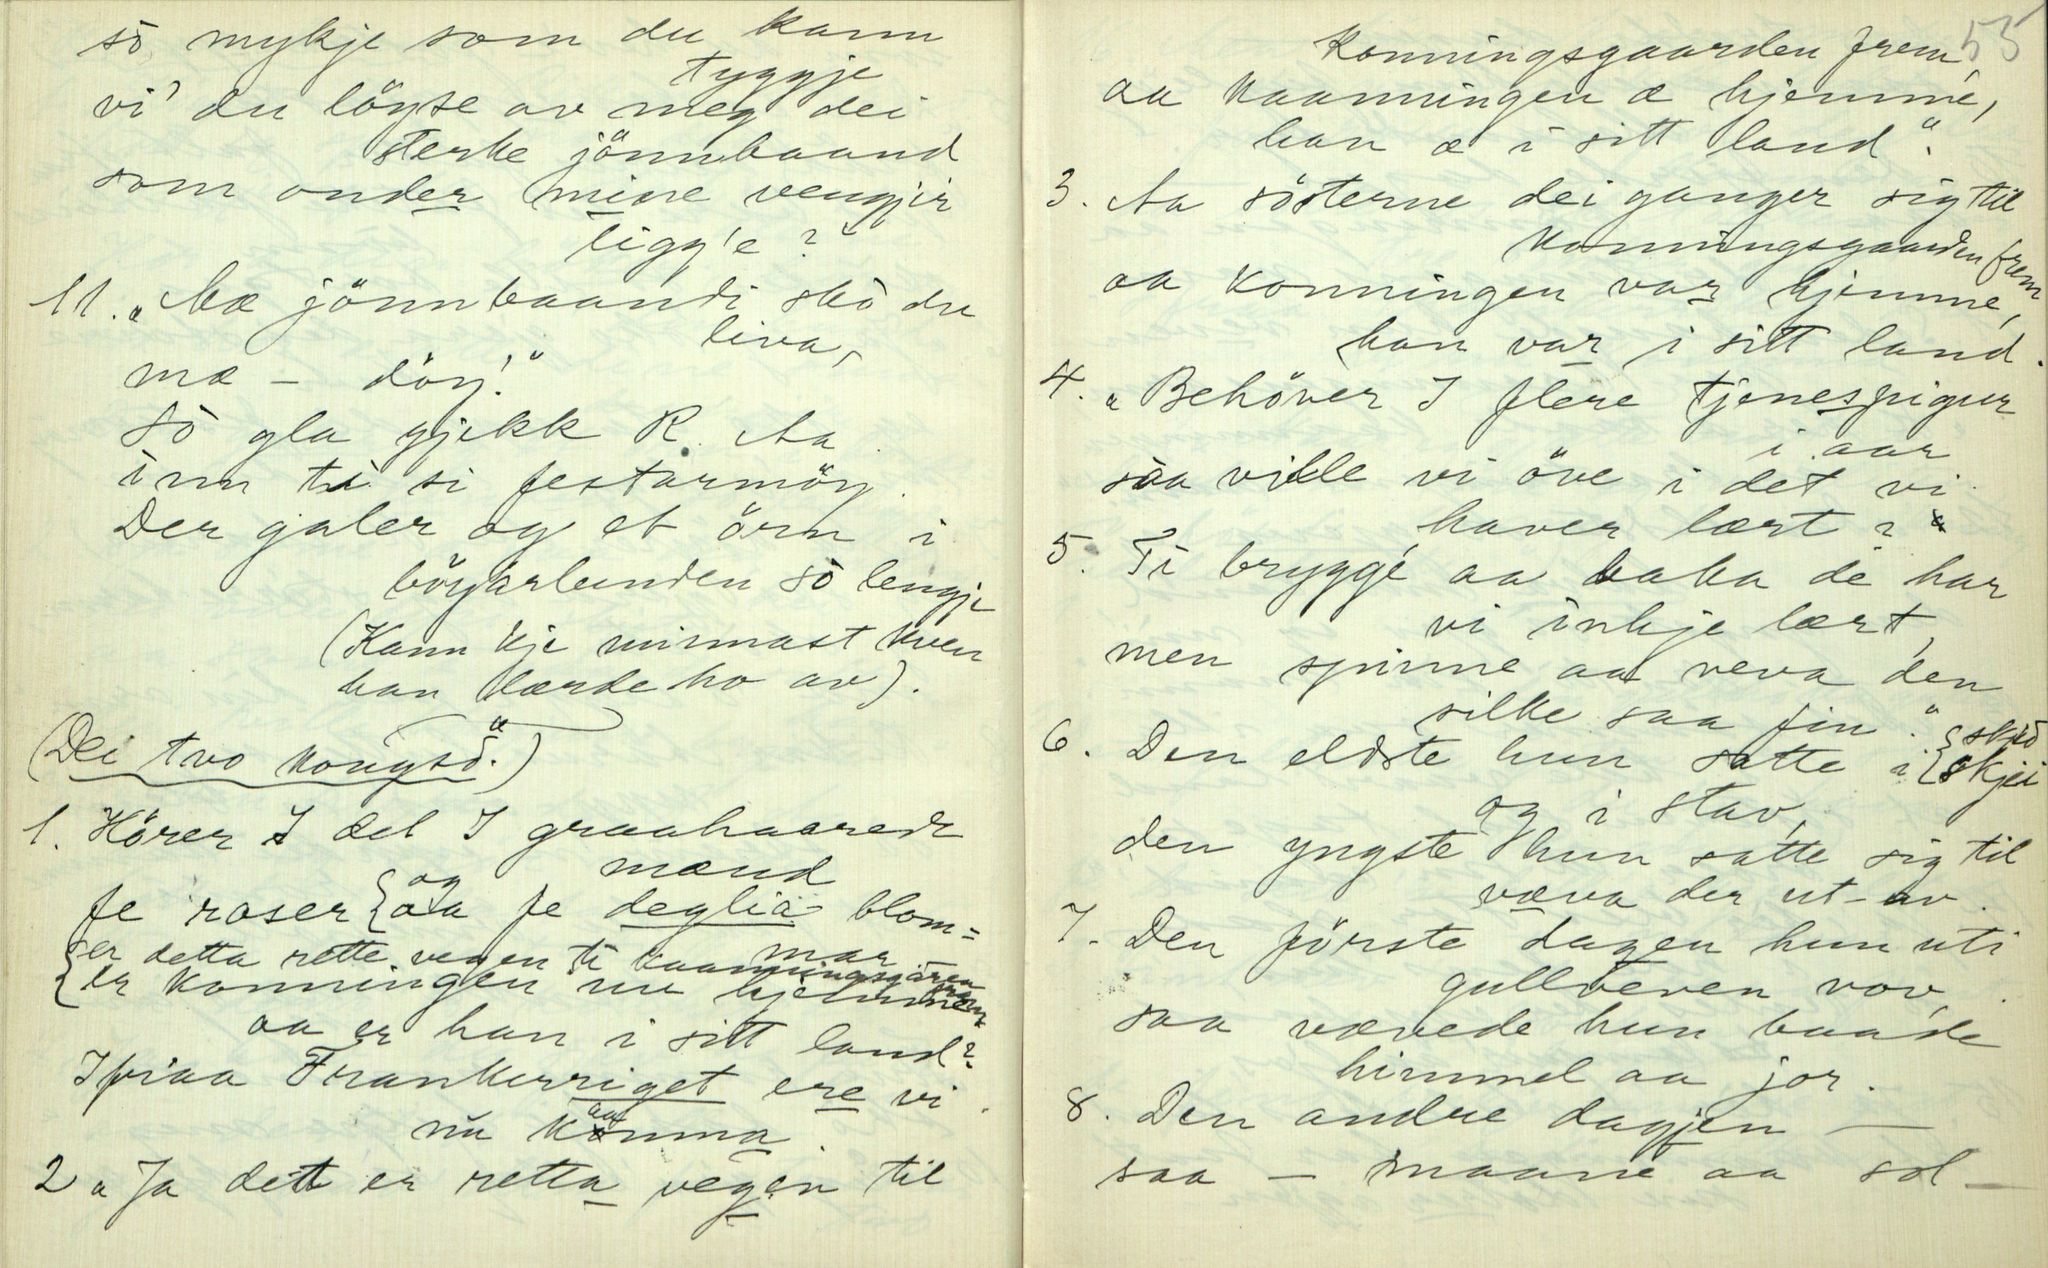 sò mykje som du kann
tyggje
vi' du löyse av meg dei
sterke jönnbaand
som onder mine vengjir
ligg'e?"
11. „Mæ jönnbaandi skò du
liva,
mæ – döy!"
Sò gla gjekk R. Aa
inn ti si festarmöy.
Der galer og et örn i
böyarlunden sò lengje
(Kann kje minnast kven
han lærde ho av).
(Dei tvo kongsd.")
1. Hörer I del I graahaarede
mænd
fe roser {og aa fe deglia blom=
mar
{er detta rette vegen ti kaanningsgären
frem
er konningen nu hjemme
aa er han i sitt land?
Ifraa Frankerriget ere vi
nu kaanma.
2 „Ja dett er retta vegen til
53
konningsgaarden frem,
aa kaanningen æ hjemme,
han æ i sitt land".
3. Aa sösterne dei ganger sig til
konningsgaarden frem
aa konningen var hjemme,
han var i sitt land.
4. „Behöver I flere tjenespigur
i aar
saa ville vi öve i det vi
haver lært?
5. Ti brygge aa baka de har
vi inkje lært,
men spinne aa veva den
silke saa fin."
6. Den eldste hun satte i {skjö
{skjei
og i stav,
den yngste hun satte sig til
væva der ut-av.
7. Den förste dagen hun uti
gullveven vov,
saa vævede hun baade
himmel aa jor.
8. Den andre dagjen —
saa — maane aa sol —